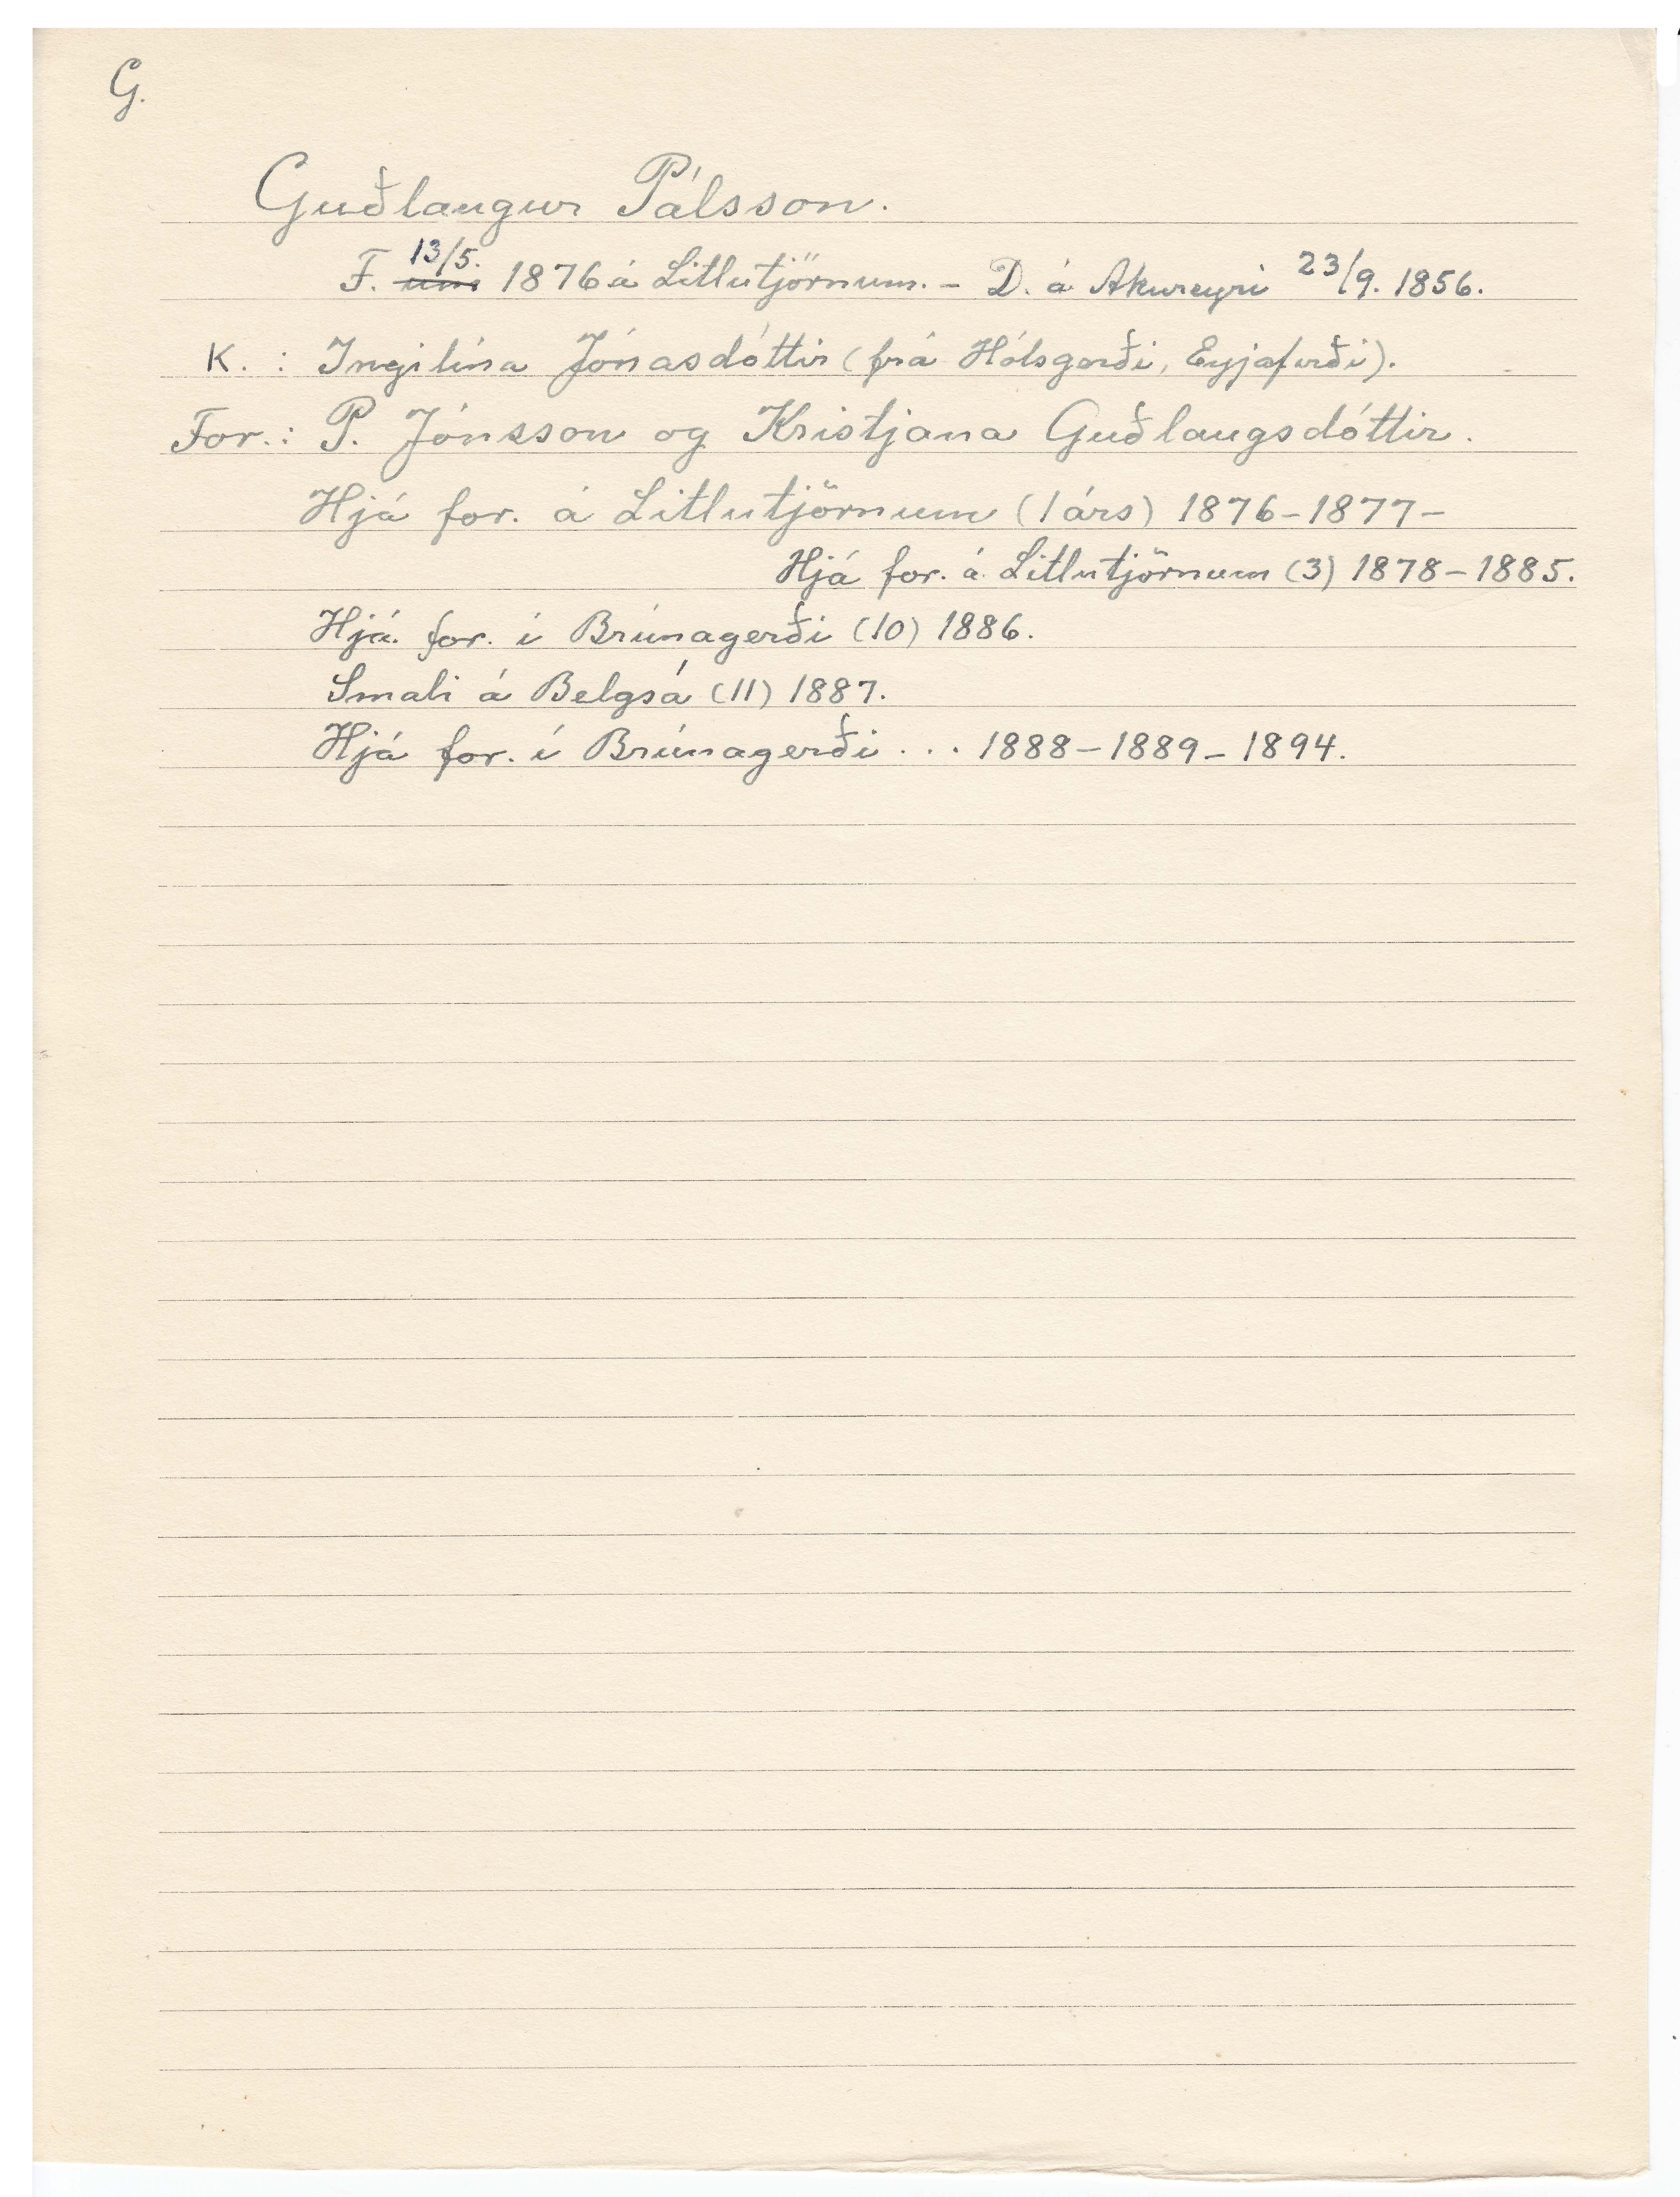 G.
Guðlaugur Pálsson.
F. 13/5. 1876 á Litlutjörnum. - D. á Akureyri 23/9. 1856.
K. : Ingilína Jónasdóttir (frá Hólsgerði, Eyjafirði).
For.: P. Jónsson og Kristjana Guðlaugsdóttir.
Hjá for. á Litlutjörnum (1 árs) 1876-1877-
Hjá for. á Litlutjörnum (3) 1878-1885.
Hjá for. í Brúnagerði (10) 1886.
Smali á Belgsá (11) 1887.
Hjá for. í Brúnagerði . . . 1888-1889-1894.